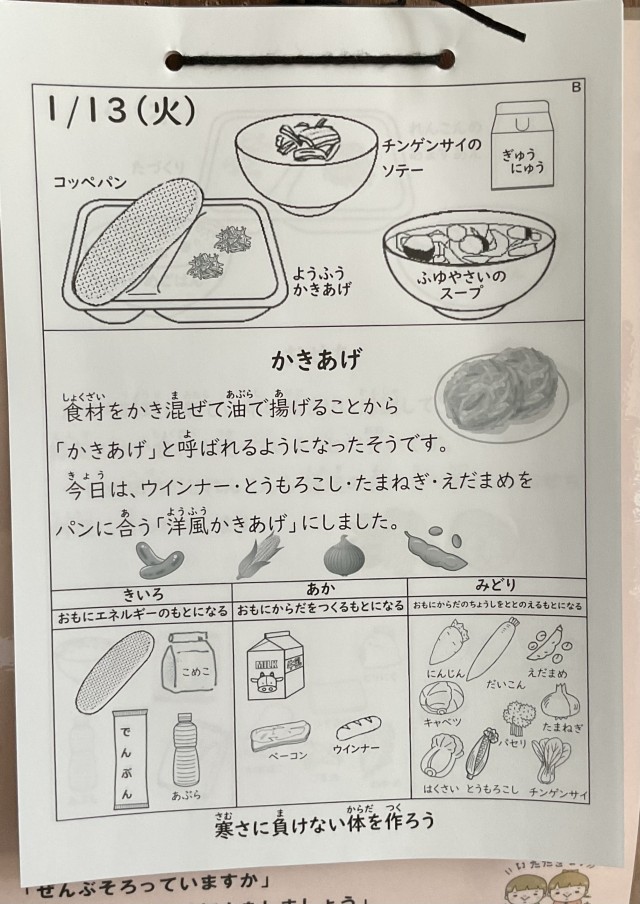 B
1/13(火)
チンゲンサイの
ソテー
ぎゅう
にゅう
コッペパン
ようふう
かきあげ
ふゆやさいの
スープ
かきあげ
食材をかき混ぜて油で揚げることから
「かきあげ」と呼ばれるようになったそうです。
今日は、ウインナー・とうもろこし・たまねぎ・えだまめを
パンに合う「洋風かきあげ」にしました。
きいろ
おもにエネルギーのもとになる
あか
おもにからだをつくるもとになる
みどり
おもにからだのちょうしをととのえるもとになる
こめこ
でんぷん
あぶら
MILK
ベーコン
ウインナー
にんじん
だいこん
えだまめ
キャベツ
パセリ
たまねぎ
はくさい
とうもろこし
チンゲンサイ
寒さに負けない体を作ろう
「ぜんぶそろっていますか」